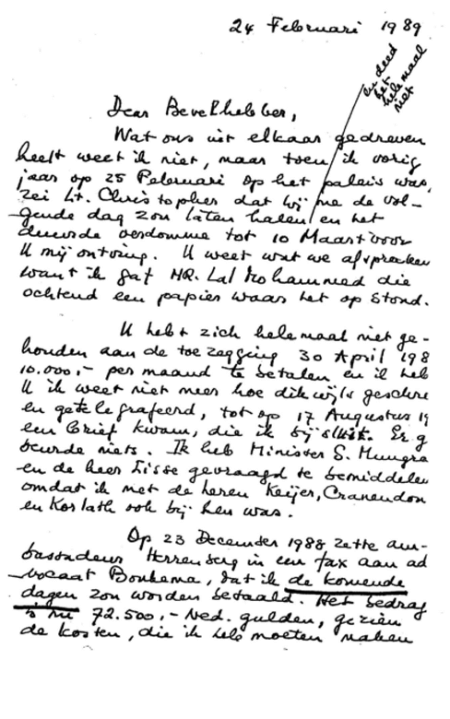 24 Februari 1989
en deed
het
helemaal
niet
Dear Bevelhebber,
Wat ons uit elkaar gedreven
heeft weet ik niet, maar toen ik vorig
jaar op 25 Februari op het paleis was,
zei Lt. Christopher dat wij me de vol-
gende dag zou laten halen en het
duurde verdomme tot 10 Maart voor
U mij ontving. U weet wat we afspraken
want ik gaf MR. Lal Mohammed die
ochtend een papier waar het op stond.
U hebt zich helemaal niet ge-
houden aan de toezegging 30 April 198
10.000,- per maand te betalen en il heb
U ik weet niet meer hoe dikwijls geschre
en getelegrafeerd, tot op 17 Augustus 19
een brief kwam, die ik bijsluit. Er g
beurde niets. Ik heb Minister S. Mungra
en de heer Lisse gevraagd te bemiddelen
omdat ik met de heren Keijer, Cranendon
en Korlath ook bij hen was.
Op 23 December 1988 zette am-
bassadeur Herrenberg in een fax aan ad
vocaat Bonkema, dat ik de komende
dagen zou worden betaald. Het bedrag
is nu 72.500,- Ned. gulden, gezien
de kosten, die ik heb moeten maken